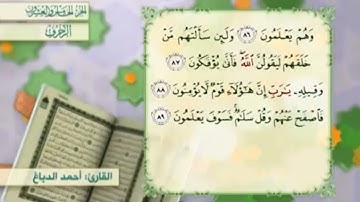 الجزء الخامس والعشرون
الزخرف
وَهُمْ يَعْلَمُونَ ﴿٨٦﴾ وَلَئِن سَأَلْتَهُم مَّنْ
خَلَقَهُمْ لَيَقُولُنَّ اللَّهُ فَأَنَّىٰ يُؤْفَكُونَ ﴿٨٧﴾
وَقِيلِهِ يَا رَبِّ إِنَّ هَٰؤُلَاءِ قَوْمٌ لَّا يُؤْمِنُونَ ﴿٨٨﴾
فَاصْفَحْ عَنْهُمْ وَقُلْ سَلَامٌ فَسَوْفَ يَعْلَمُونَ ﴿٨٩﴾
القارئ: أحمد الدباغ